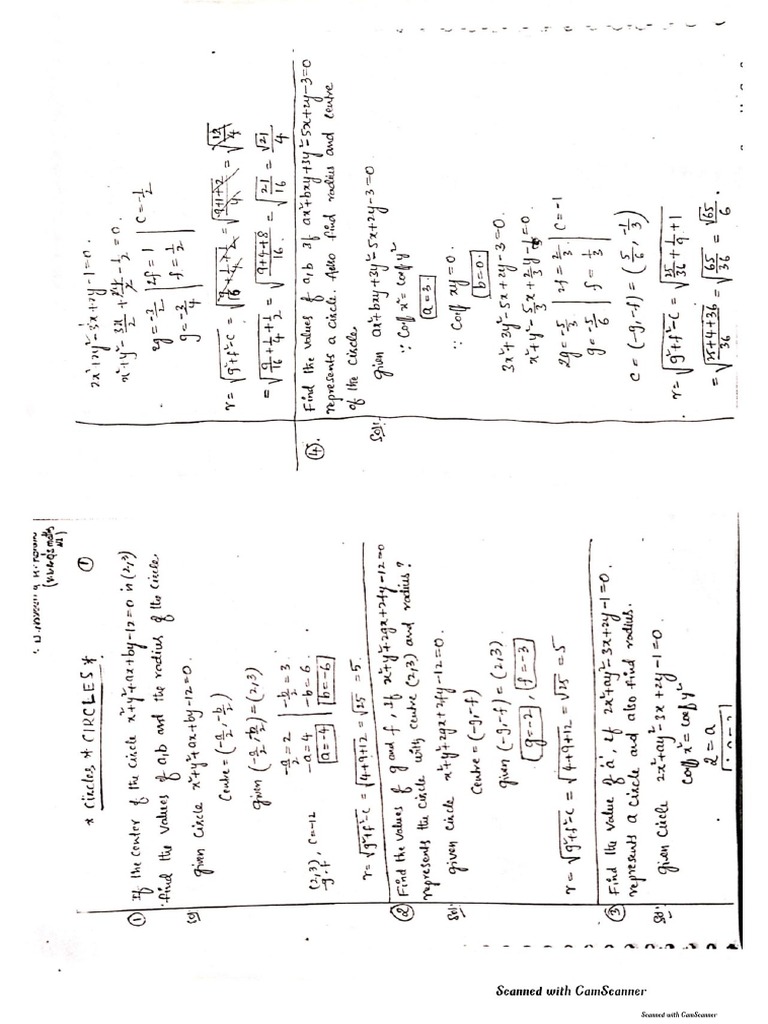 * Circles * CIRCLES *
①
(v.v.g.q's maths
① If the center of the circle x²+y²+ax+by-12=0 is (2,3)
find the values of a,b and the radius of the circle.
Sol
given circle x²+y²+ax+by-12=0.
Centre = (-a/2, -b/2)
given (-a/2, -b/2) = (2,3)
-a/2 = 2 | -b/2 = 3
-a=4 | -b=6.
a=-4 | b=-6
(2,3), c=-12
-g -f
r=√g²+f²-c = √4+9+12 = √25 = 5.
② Find the values of g and f, if x²+y²+2gx+2fy-12=0
represents the circle with centre (2,3) and radius?
Sol:
given circle x²+y²+2gx+2fy-12=0.
Centre = (-g,-f)
given (-g,-f) = (2,3)
g=-2, f=-3
r = √g²+f²-c = √4+9+12 = √25 = 5
③ Find the value of 'a', if 2x²+ay²-3x+2y-1=0.
represents a circle and also find radius.
Sol:
given circle 2x²+ay²-3x+2y-1=0.
coeff x² = coeff y²
2=a
2x²+2y²-3x+2y-1=0.
x²+y²-3x/2+2y/2-1/2=0.
2g=-3/2 | 2f=1 | c=-1/2
g=-3/4 | f=1/2
r=√g²+f²-c
=√9/16+1/4+1/2 = √9+4+8/16 = √21/16 = √21/4
④. Find the values of a,b if ax²+bxy+3y²-5x+2y-3=0
represents a circle. Also find radius and centre
of the circle.
Sol:
given ax²+bxy+3y²-5x+2y-3=0.
∵ Coeff x² = coeff y²
a=3.
∵ Coeff xy=0.
b=0.
3x²+3y²-5x+2y-3=0.
x²+y²-5/3x+2/3y-1=0.
2g=-5/3 | 2f=2/3 | c=-1
g=-5/6 | f=1/3
C = (-g,-f) = (5/6, -1/3)
r=√g²+f²-c = √25/36+1/9+1
=√25+4+36/36 = √65/36 = √65/6
Scanned with CamScanner
Scanned with CamScanner